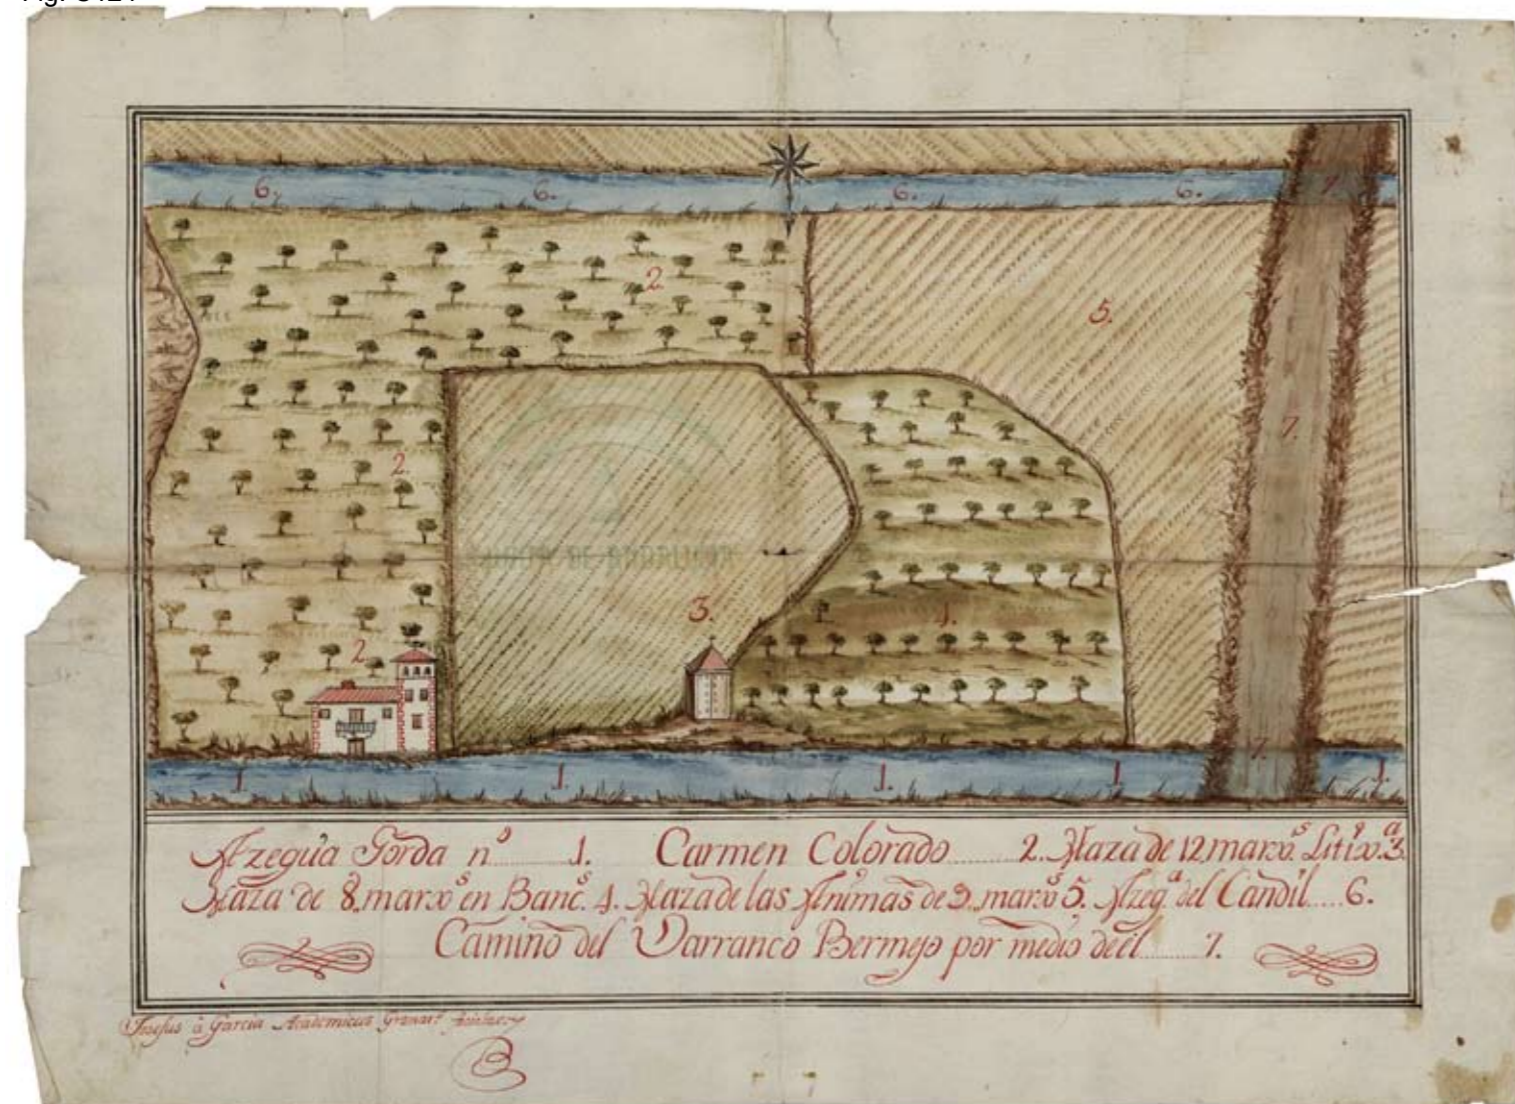 6. 6. 6. 6. 7.
2.
5.
7.
2.
JUNTA DE ANDALUCIA
3.
4.
2.
7.
1. 1. 1. 1. 1.
Azequia Gorda nº 1. Carmen Colorado 2. Haza de 12 marx.s Litix.ª 3.
Haza de 8 marx.s en Banc.s 4. Haza de las Animas de 9 marx.s 5. Azeq.ª del Candil 6.
Camino del Varranco Bermejo por medio de el 7.
Josefus à Garcia Academicus Granat.